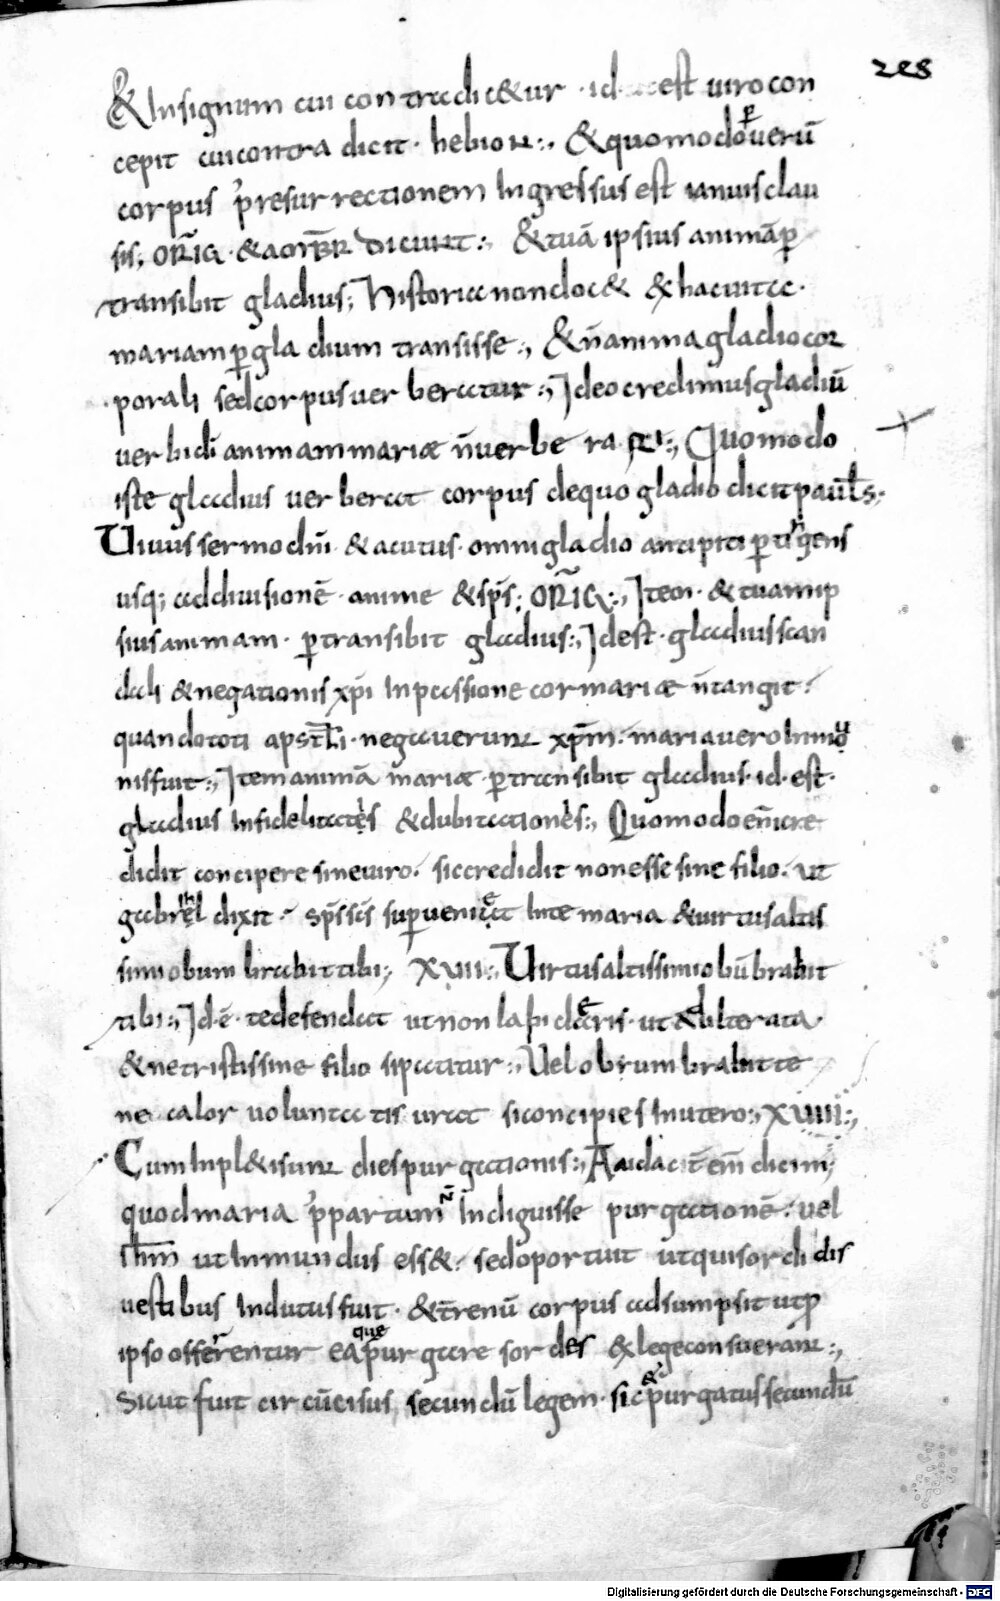 228
& In signum cui contradic&ur · id · est uiro con
cepit cui contra dicit · hebion :, & quomodo uerū
corpus p̓ resurrectionem Ingressus est ianuis clau
sis, & dicunt :, & tuā ipsius animā ꝑ
transibit gladius ; Historia non doc& & hac uita ·
mariam ꝑ gladium transisse :, & n̄ anima gladio cor
porali sed corpus uerberatur :, Ideo credimus gladiū
uerbi di animam mariæ n̄ uerberasti :, Quomodo
iste gladius uerberat corpus de quo gladio dicit pauls̄ ·
Uiuus sermo dn̄i · & acutus · omni gladio ancipiti ꝑtingens
usq; ad diuisionē · anime & sp̄s ; ORIḠ :, Item · & tuam ip
sius animam · ꝑtransibit gladius :, Id est · gladius scan
dali & negationis xp̄i In passione cor mariæ n̄ tangit ·
quando toti apst̄li · negauerunt xp̄m · maria uero
nis fuit :, Item animā mariæ · ꝑtransibit gladius · id · est ·
gladius Infidelitates & dubitationes :, Quomodo eni̅ cre
didit concipere sine uiro · sic credidit non esse sine filio · ut
gabrihel dixit · sp̄s sc̄s suꝑueniet In te maria & uirtus altis
simi obumbrabit tibi ; XVIII :, Uirtus altissimi obūbrabit
tibi :, Id · ē · te defendat ut non lapideris · ut adulterata ·
& ne tristis sine filio sis :, Uel obumbrabit te
ne calor uoluntatis urat si concipies In utero :, XVIIII :,
Cum Inpl&i sunt dies purgationis :, dicim;
quod maria p̓ partum n̄ Indiguisse purgationē · uel
ih̄m ut Inmundus ess& · sed oportuit ut qui sordidis
uestibus Indutus fuit · & t̄renū corpus adsumpsit ut ꝓ
ipso offerrentur ea que purgare sordes & lege consuerant :,
Sicut fuit circūcisus, secundū legem · sic & purgatus secundū
Digitalisierung gefördert durch die Deutsche Forschungsgemeinschaft - DFG